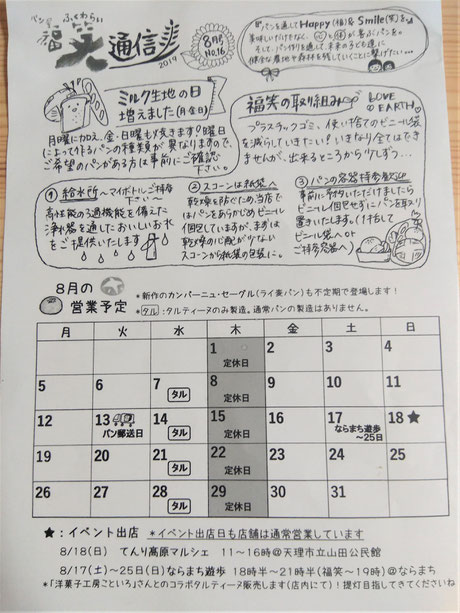 パンの
ふくわらい
福笑通信
8月
No.16
2019
パンを通してHappy(福)& Smile(笑)を
ミルク生地の日
増えました(月金日)
月曜に加え、金・日曜も焼きます!曜日
によって作るパンの種類が異なりますので、
ご希望のパンがある方は事前にご確認
下さい。
福笑の取り組み
LOVE
EARTH
プラスチックゴミ、使い捨てのビニール袋
を減らしていきたい!いきなり全てはでき
ませんが、出来るところから少しずつ…
① 給水所〜マイボトルご持参
下さい〜
高性能のろ過機能を備えた
浄水器を通したおいしいお水
をご提供いたします
② スコーンは紙袋へ
乾燥を防ぐため、当店で
はパンをあらかじめビニール
個包していますが、まずは
乾燥の心配が少ない
スコーンから紙袋の包装に。
③ パンの容器持参
事前に予約いただけましたら
ビニール個包せずにパンを取り
置きいたします。
ビニール袋へ or
ご持参容器へ)
8月の
営業予定
*新作のカンパーニュ・セーグル(ライ麦パン)も不定期で登場します!
*タル:タルティーヌのみ製造。通常パンの製造はありません。
月 火 水 木 金 土 日
1 2 3 4
定休日
5 6 7 8 9 10 11
タル 定休日
12 13 14 15 16 17 18★
パン郵送日 タル 定休日 ならまち遊歩
〜25日
19 20 21 22 23 24 25
タル 定休日
26 27 28 29 30 31
タル 定休日
★:イベント出店 *イベント出店日も店舗は通常営業しています
8/18(日) てんり高原マルシェ 11〜16時@天理市立山田公民館
8/17(土)〜25日(日)ならまち遊歩 18時半〜21時半(福笑〜19時)@ならまち
*「洋菓子工房ごといろ」さんとのコラボタルティーヌ販売します(店内にて)!提灯目指してきてくださいね